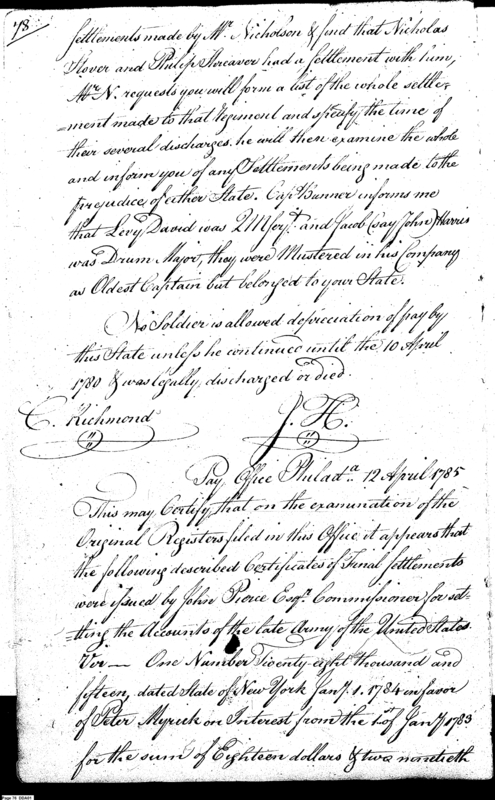 78
settlements made by Mr. Nicholson & find that Nicholas
Hover and Philip Shreaver had a settlement with him,
Mr. N. requests you will form a list of the whole settle-
-ment made to that Regiment and specify the time of
their several discharges. he will then examine the whole
and inform you of any Settlements being made to the
prejudice of either State. Capt. Bunner informs me
that Levy David was 2 M Serjt. and Jacob (say John) Harris
was Drum Major, they were Mustered in his Company
as Oldest Captain but belonged to your State.
No Soldier is allowed depreciation of pay by
this State unless he continued until the 10 April
1780 & was legally discharged or died.
C. Richmond J. H.
Pay Office Philada. 12 April 1785
This may Certify that on the examination of the
Original Registers filed in this Office it appears that
the following described Certificates of Final Settlements
were issued by John Pierce Esqr. Commissioner for set-
-tling the Accounts of the late Army of the United States
Viz — One Number Twenty eight thousand and
fifteen, dated State of New York Jany. 1. 1784 in favor
of Peter Myrick on Interest from the 1st of Jany 1783
for the sum of Eighteen dollars & two ninetieth
Page 78 DDA01